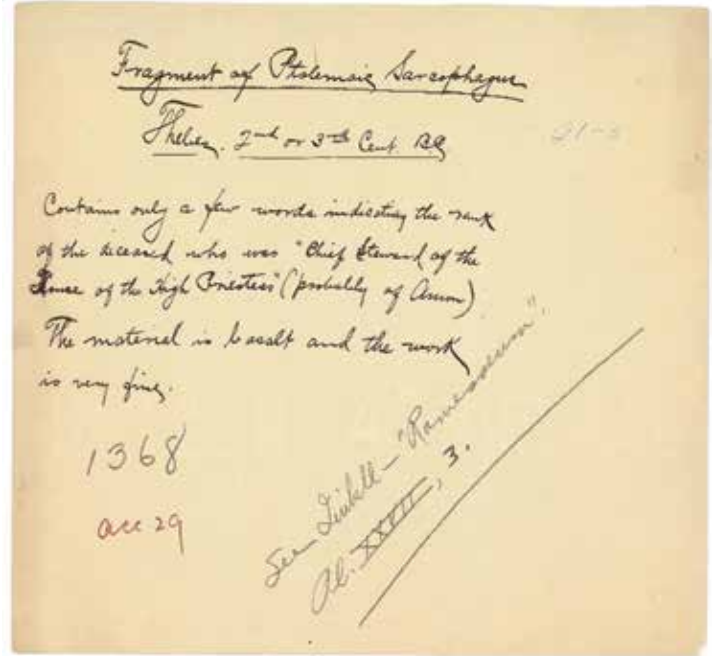 Fragment of Ptolemaic Sarcophagus
Thebes. 2nd or 3rd Cent. BC
21-5
Contains only a few words indicating the rank
of the deceased who was "Chief Steward of the
House of the High Priestess" (probably of Amon)
The material is basalt and the work
is very fine.
1368
acc 29
See Quibell - "Ramesseum".
Pl. XXVII, 3.